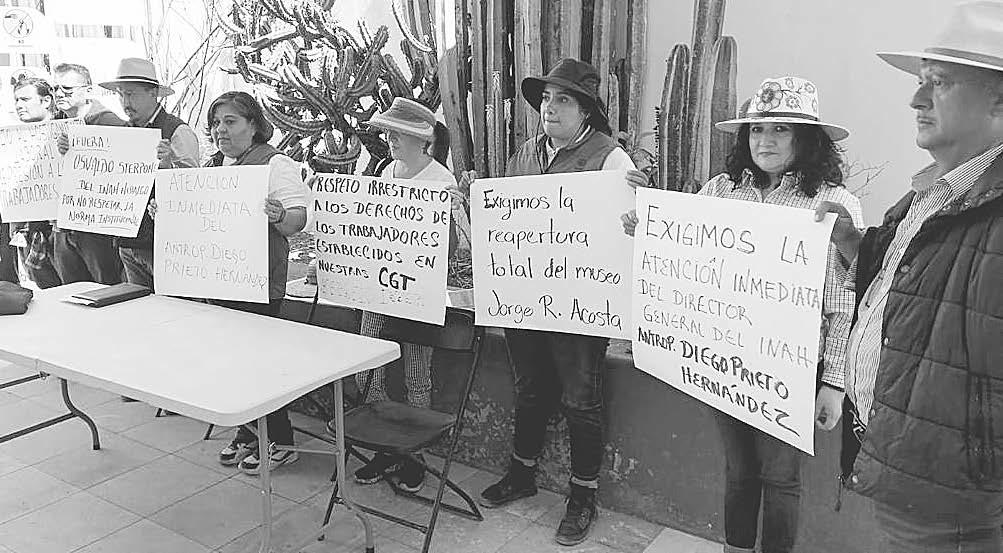 TRABAJADORES
¡FUERA!
OSVALDO STERPONE
DEL INAH HIDALGO
POR NO RESPETAR LA
NORMA INSTITUCIONAL
ATENCION
INMEDIATA
DEL
ANTROP. DIEGO
PRIETO HERNÁNDEZ
RESPETO IRRESTRICTO
A LOS DERECHOS DE
LOS TRABAJADORES
ESTABLECIDOS EN
NUESTRAS CGT
Exigimos la
reapertura
total del museo
Jorge R. Acosta
EXIGIMOS LA
ATENCIÓN INMEDIATA
DEL DIRECTOR
GENERAL DEL INAH
ANTROP. DIEGO PRIETO
HERNÁNDEZ